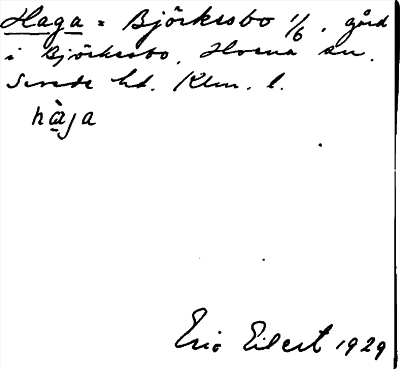 Haga = Björkesbo 1/6, gård
i Björkesbo, Hvena sn.
Sevede hd. Klm. l.
hàja
Eric Eilert 1929